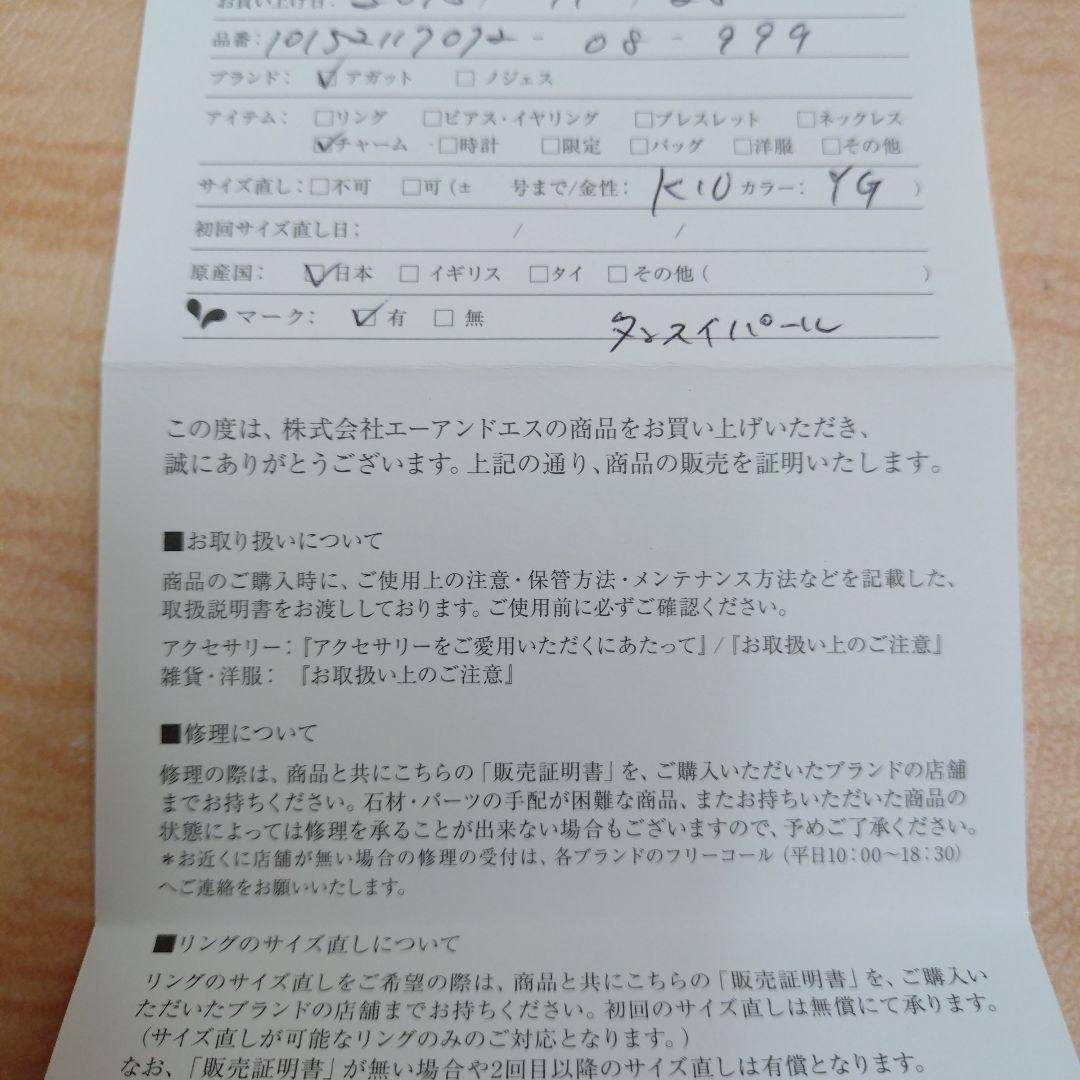 お買い上げ日:
品番: 10152117072 - 08 - 999
ブランド: ☑アガット □ノジェス
アイテム: □リング □ピアス・イヤリング □ブレスレット □ネックレス
☑チャーム □時計 □限定 □バッグ □洋服 □その他
サイズ直し: □不可 □可(± 号まで/金性: K10 カラー: YG )
初回サイズ直し日: / /
原産国: ☑日本 □イギリス □タイ □その他( )
マーク: ☑有 □無 タンスイパール
この度は、株式会社エーアンドエスの商品をお買い上げいただき、
誠にありがとうございます。上記の通り、商品の販売を証明いたします。
■お取り扱いについて
商品のご購入時に、ご使用上の注意・保管方法・メンテナンス方法などを記載した、
取扱説明書をお渡ししております。ご使用前に必ずご確認ください。
アクセサリー:『アクセサリーをご愛用いただくにあたって』/『お取扱い上のご注意』
雑貨・洋服: 『お取扱い上のご注意』
■修理について
修理の際は、商品と共にこちらの「販売証明書」を、ご購入いただいたブランドの店舗
までお持ちください。石材・パーツの手配が困難な商品、またお持ちいただいた商品の
状態によっては修理を承ることが出来ない場合もございますので、予めご了承ください。
*お近くに店舗が無い場合の修理の受付は、各ブランドのフリーコール(平日10:00~18:30)
へご連絡をお願いいたします。
■リングのサイズ直しについて
リングのサイズ直しをご希望の際は、商品と共にこちらの「販売証明書」を、ご購入い
ただいたブランドの店舗までお持ちください。初回のサイズ直しは無償にて承ります。
(サイズ直しが可能なリングのみのご対応となります。)
なお、「販売証明書」が無い場合や2回目以降のサイズ直しは有償となります。